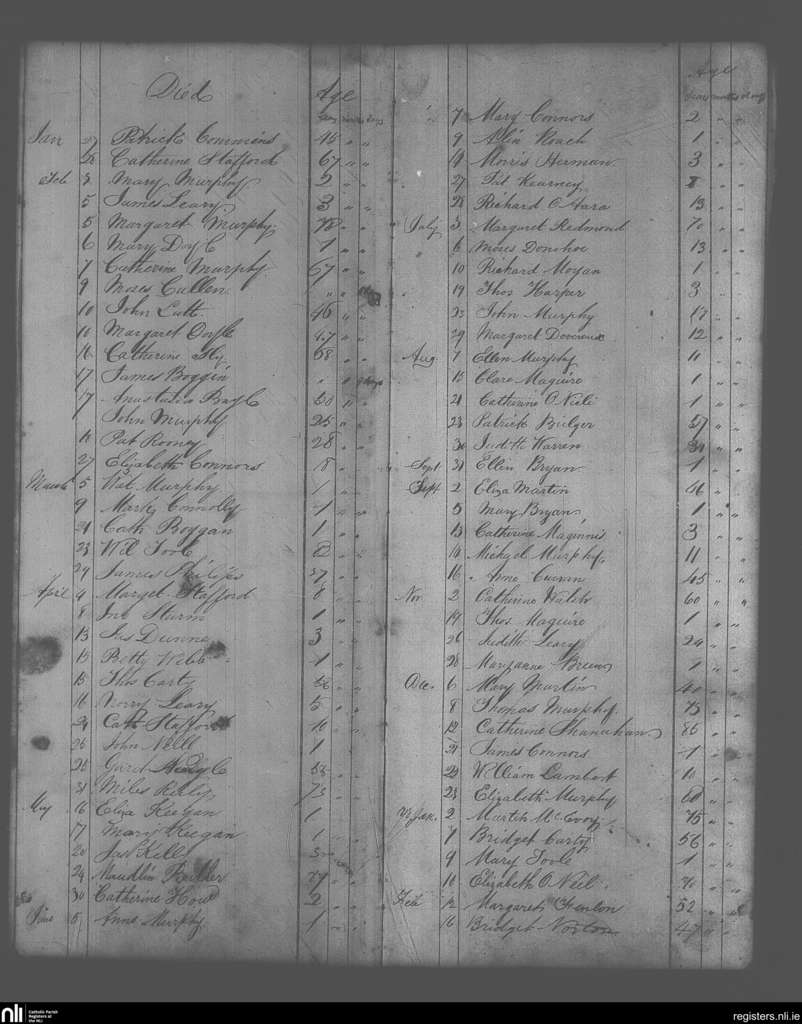 Died Age
years months days
Jan 27 Patrick Commins
28 Catherine Stafford 67 " "
Feb 3 Mary Murphy 2 " "
5 James Leary 3 " "
5 Margaret Murphy " "
6 Mary Doyle 1 " "
7 Catherine Murphy 67 " "
9 Moses Cullen " "
10 John 46 " "
10 Margaret 47 " "
16 Catherine 68 " "
17 James Boggin " " days
17 Anastasia 50 " "
John Murphy 25 " "
Pat Rooney 28 " "
27 Elizabeth Connors 8 " "
March 5 Wal Murphy 1 " "
9 Mark Connolly 1 " "
21 Cath Boggan 1 " "
23 Wil Toole 2 " "
29 James Philips 37 " "
April 4 Marget Stafford 8 " "
8 Jno Sturm 1 " "
13 Jas Dunne 3 " "
15 Betty Webb 1 " "
15 Thos Carty " "
16 Norry Leary 5 " "
24 Cath Stafford 10 " "
26 John Nell 1 " "
28 Gard " "
31 Miles Kelly 73 " "
May 16 Eliza Keegan 1
17 Mary Keegan 1 " "
20 Jas Kell
24 Maudlin 77 " "
30 Catherine Howe 2 " "
June 5 Anne Murphy 1 " "
Age
years months days
" 7 Mary Connors 2 " "
9 Roach 1 " "
Morris Herman 3 " "
27 Pat Kearney " "
28 Richard O Hara 13 " "
July 3 Margaret Redmond 70 " "
6 Moses Donohoe 13 " "
10 Richard Mogan 1 " "
19 Thos Harper 3 " "
23 John Murphy 17 " "
29 Margaret Devereux 12 " "
Aug 7 Ellen Murphy 11 " "
15 Clare Maguire 1 " "
21 Catherine O Neile 1 " "
23 Patrick Bulger 57 " "
30 Judith Warren " "
Sept 31 Ellen Bryan 1 " "
Sept 2 Eliza Martin 46 " "
3 Mary Bryan 1 " "
13 Catherine Maginnis 3 " "
10 Michael Murphy 11 " "
16 Anne 45 " "
Nov 2 Catherine Walsh 60 " "
19 Thos Maguire 1 " "
26 Judith Leary 24 " "
28 Maryanne Breen 1 " "
Dec. 6 Mary Martin 40 " "
8 Thomas Murphy 73 " "
12 Catherine Shanahan 86 " "
21 James Connors 1 " "
23 William Lambert 10 " "
23 Elizabeth Murphy 60 " "
Jan. 2 Martin McEvoy 75 " "
7 Bridget Carty 56 " "
9 Mary Toole 1 " "
10 Elizabeth O Neil 70 " "
Feb 12 Margaret Fenlon 52 " "
16 Bridget Norton 47 " "
nli Catholic Parish
Registers at
the NLI
registers.nli.ie